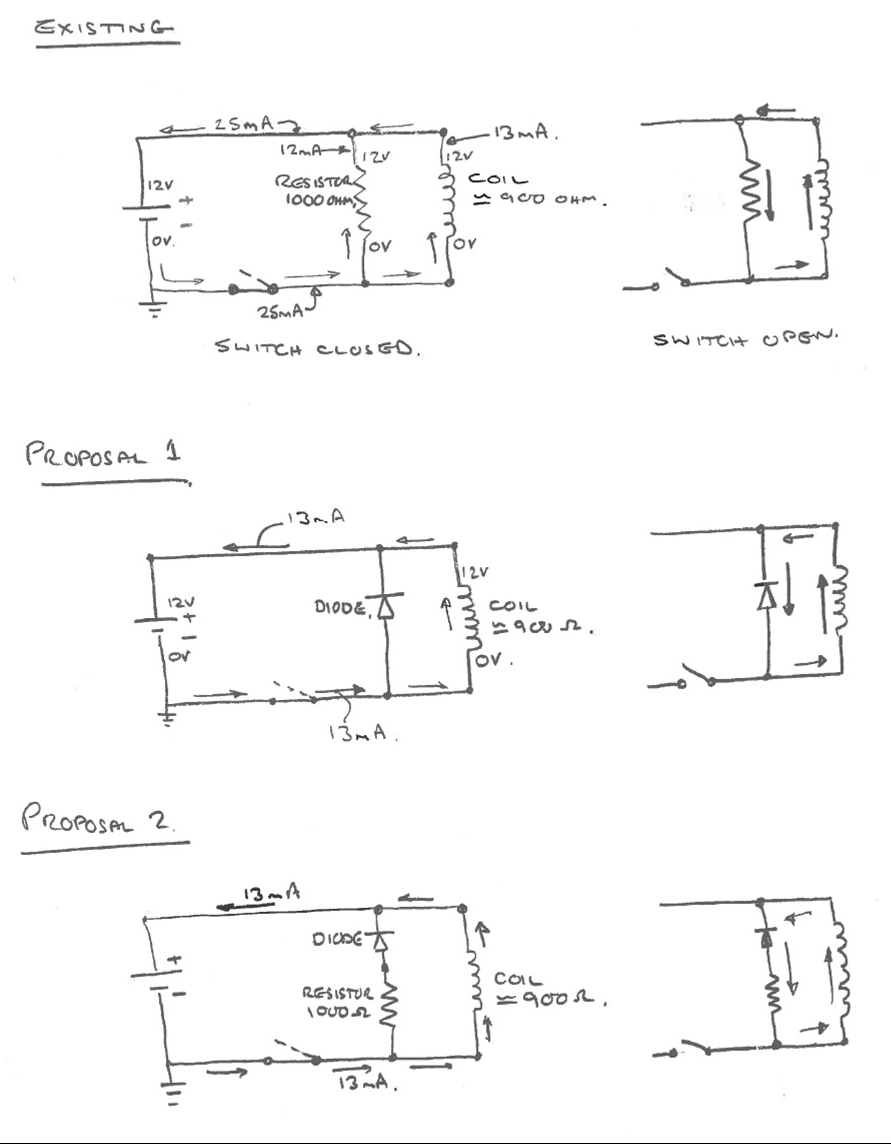 EXISTING
25mA
13mA.
12mA
12V
12V
RESISTOR
1000 OHM.
COIL
≈ 900 OHM.
12V
+
-
0V.
0V
0V
25mA
SWITCH CLOSED.
SWITCH OPEN.
PROPOSAL 1
13mA
12V
12V
+
-
0V
DIODE.
COIL
≈ 900 Ω.
0V.
13mA.
PROPOSAL 2.
13mA
DIODE
+
-
RESISTOR
1000Ω
COIL
≈ 900Ω.
13mA.